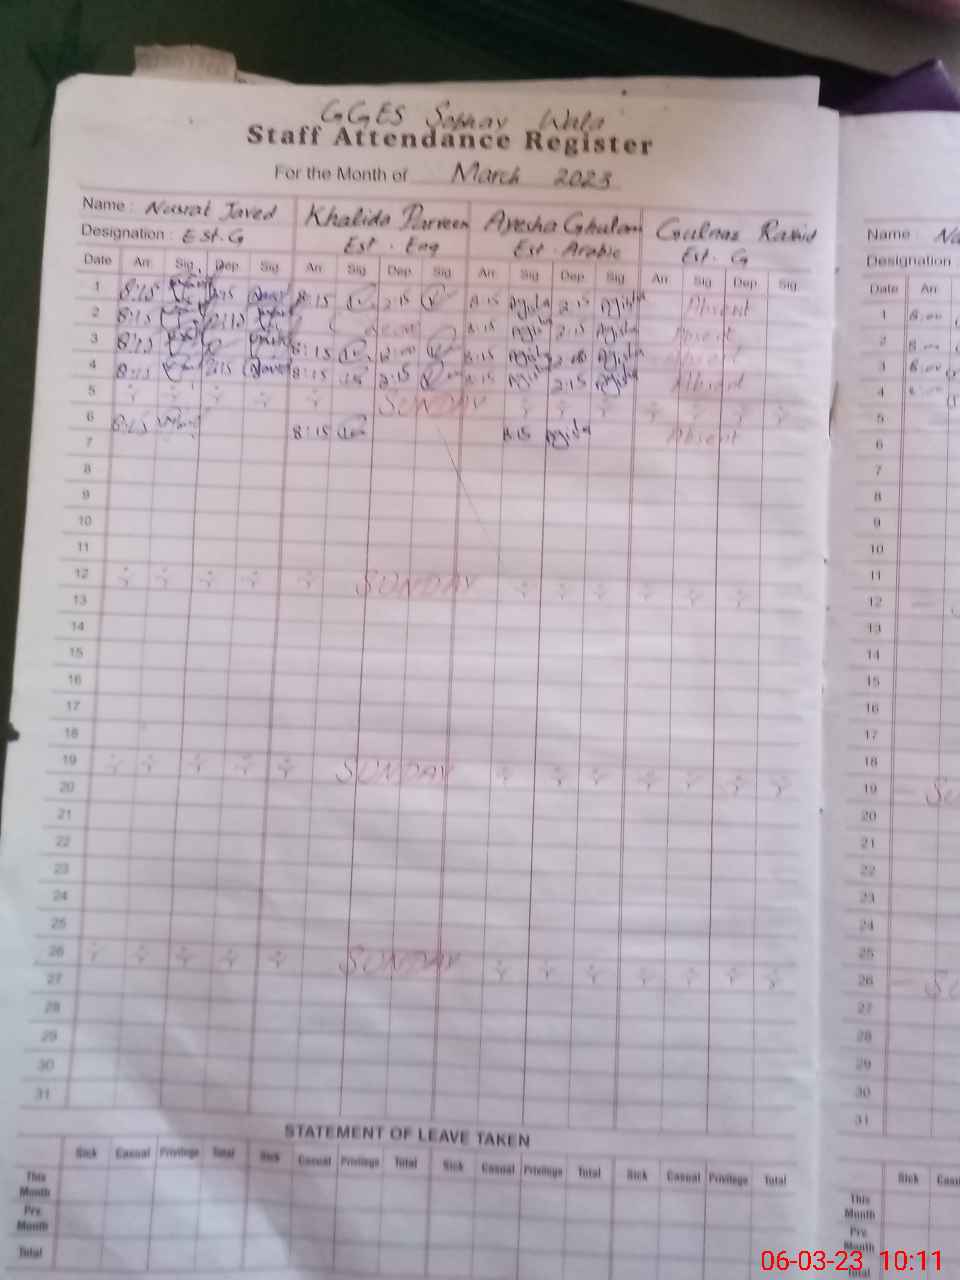 GGES Sohnay Wala
Staff Attendance Register
For the Month of March 2023
Name : Nusrat Javed Khalida Parveen Ayesha Ghulam Gulnaz Rashid
Designation : Est. G Est. Eng Est. Arabic Est. G
Date Arr. Sig. Dep. Sig. Arr. Sig. Dep. Sig. Arr. Sig. Dep. Sig. Arr. Sig. Dep. Sig.
1 8:15 2:15 8:15 2:15 8:15 2:15 Absent
2 8:15 2:15 8:15 2:15 Absent
3 8:15 8:15 12:00 8:15 Absent
4 8:15 2:15 8:15 2:15 8:15 2:15 Absent
5 SUNDAY
6 8:15 8:15 8:15 Absent
7
8
9
10
11
12 SUNDAY
13
14
15
16
17
18
19 SUNDAY
20
21
22
23
24
25
26 SUNDAY
27
28
29
30
31
STATEMENT OF LEAVE TAKEN
Sick Casual Privilege Total Sick Casual Privilege Total Sick Casual Privilege Total Sick Casual Privilege Total
This Month
Pre. Month
Total
Name : Na
Designation
Date Arr.
1 8:00
2 8:00
3 8:00
4 8:00
5
6
7
8
9
10
11
12
13
14
15
16
17
18
19 SU
20
21
22
23
24
25
26 SU
27
28
29
30
31
Sick
This Month
Pre. Month
Total
06-03-23 10:11